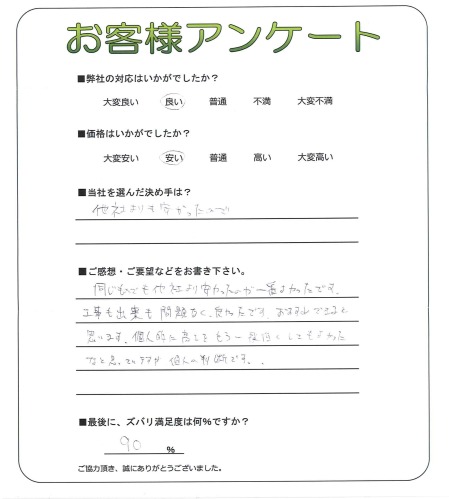 お客様アンケート
■弊社の対応はいかがでしたか?
大変良い 良い 普通 不満 大変不満
■価格はいかがでしたか?
大変安い 安い 普通 高い 大変高い
■当社を選んだ決め手は?
他社よりも安かったので
■ご感想・ご要望などをお書き下さい。
同じものでも他社より安かったのが一番よかったです。
工事も出来も問題なく、良かったです。おすすめできると
思います。個人的に高さをもう一段低くしてもよかった
なと思っていますが個人の判断です。
■最後に、ズバリ満足度は何%ですか?
90 %
ご協力頂き、誠にありがとうございました。